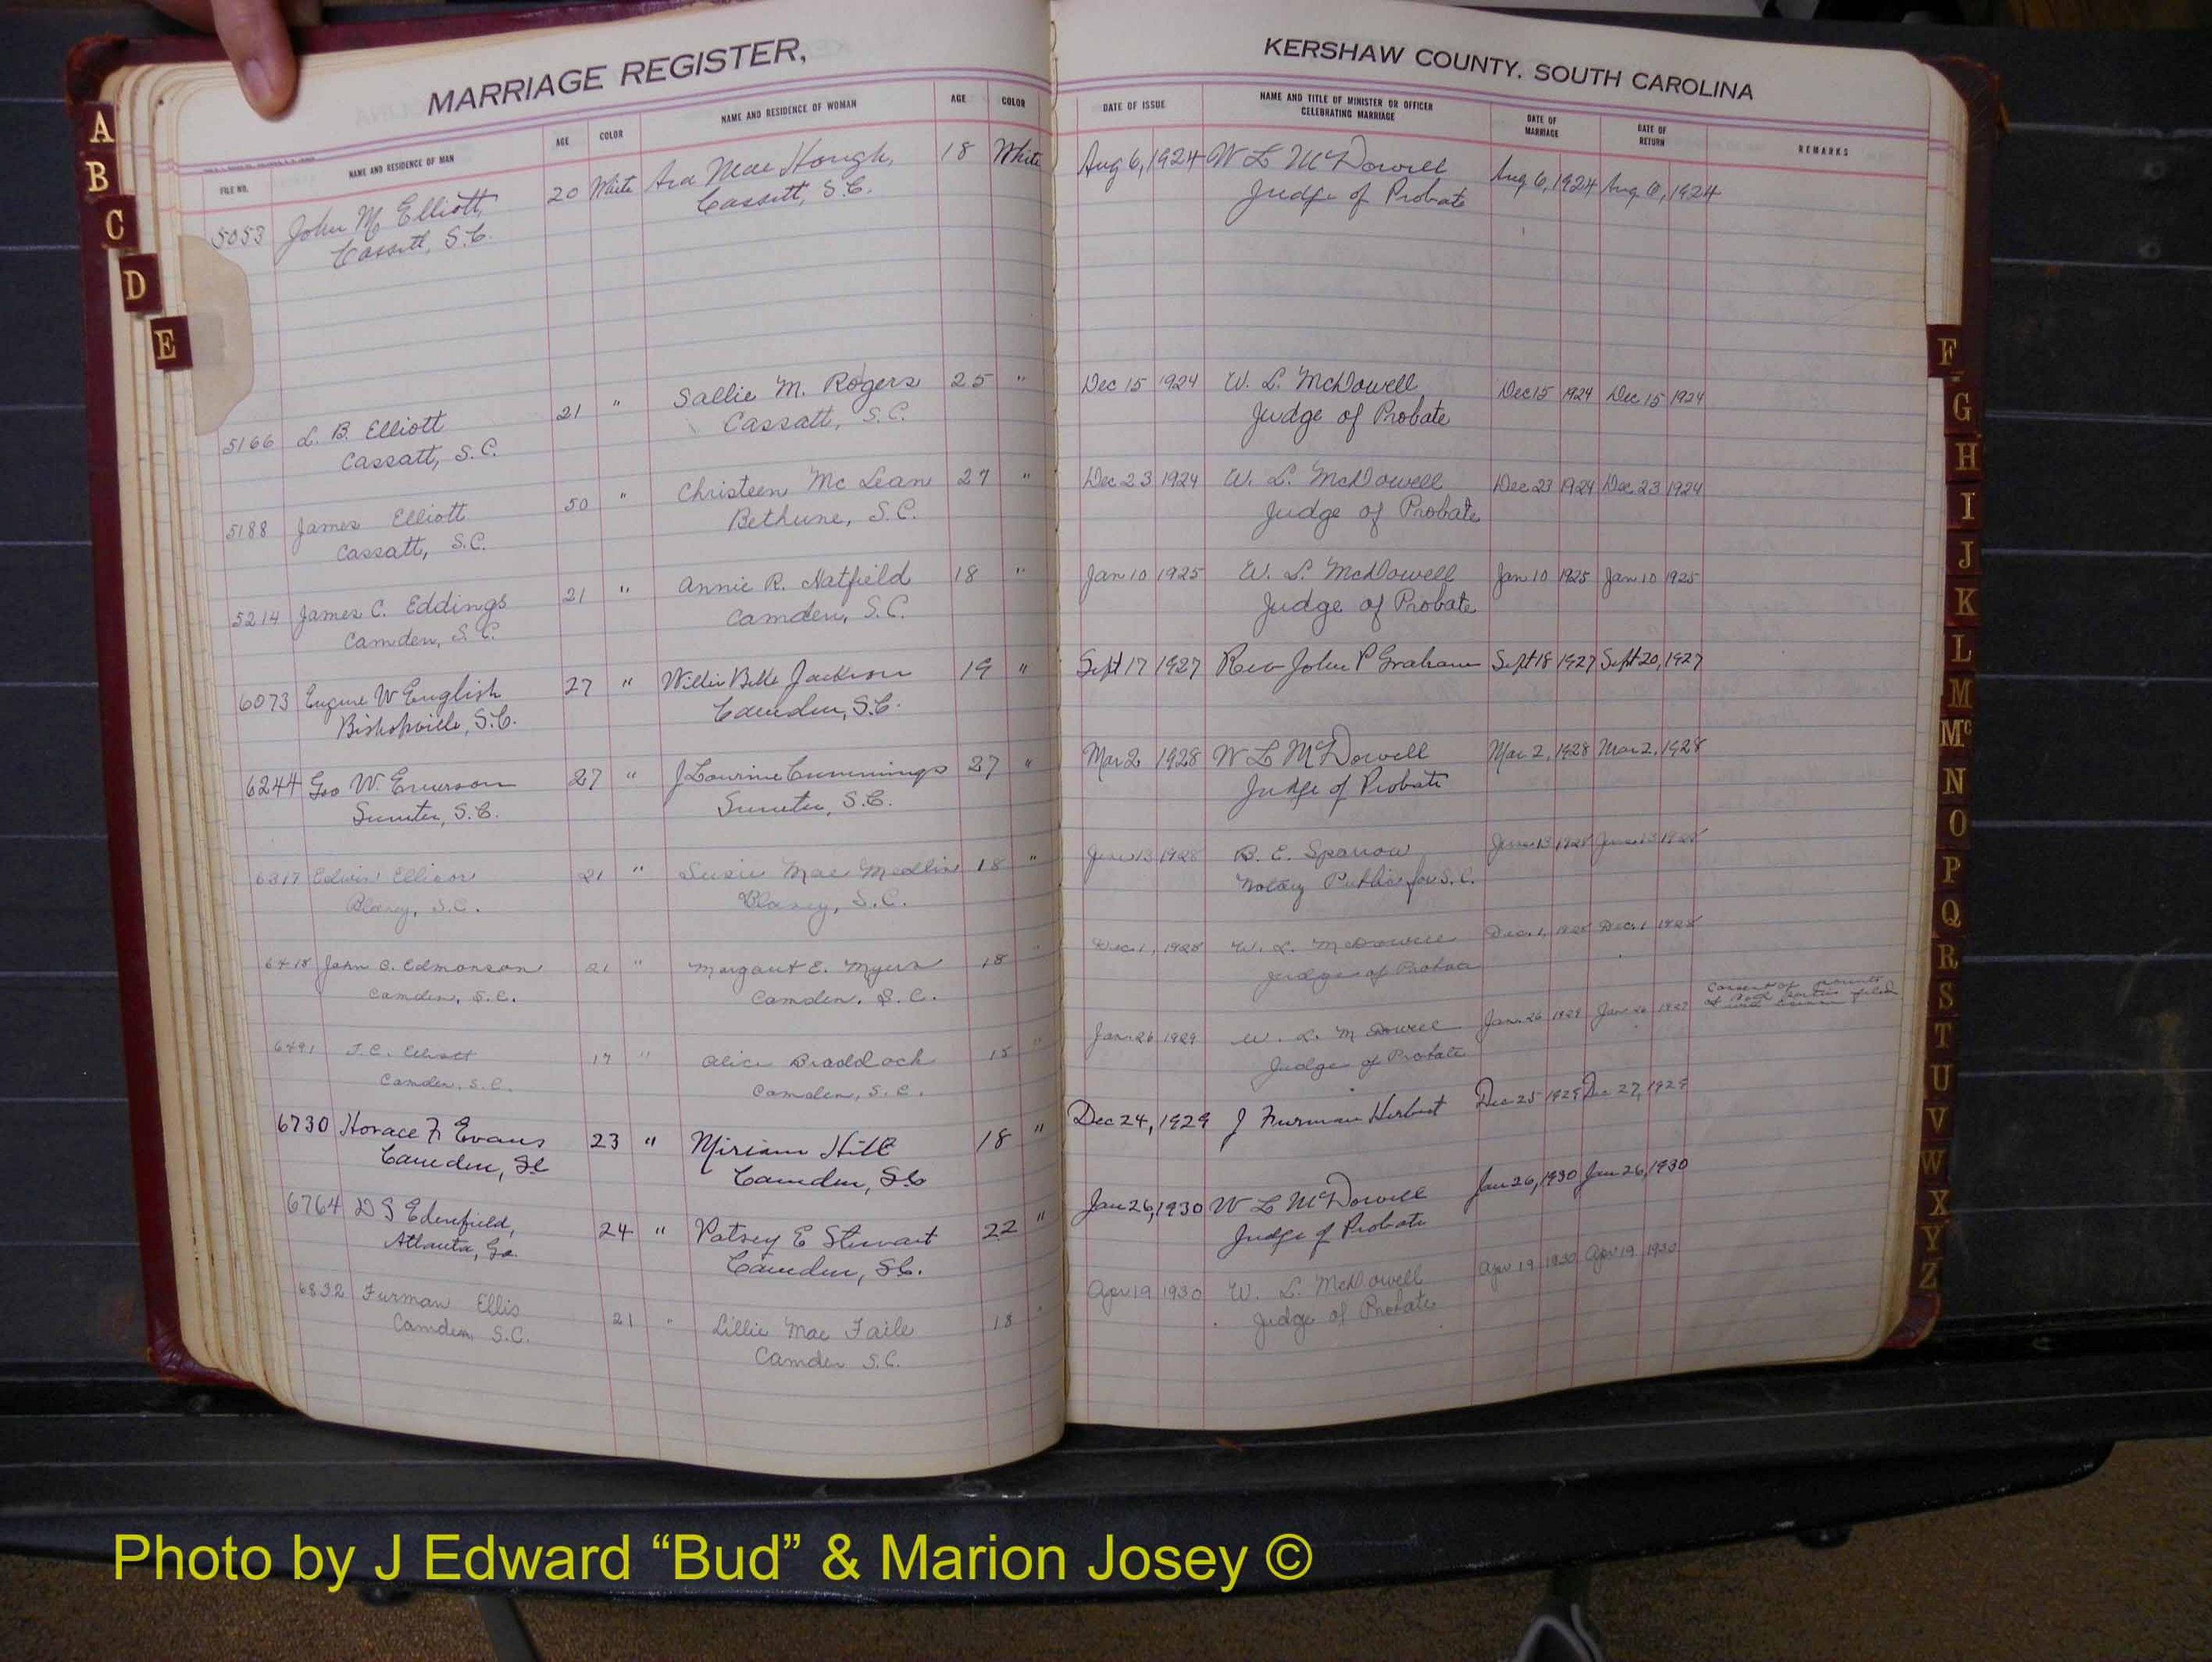 MARRIAGE REGISTER,
KERSHAW COUNTY, SOUTH CAROLINA
FILE NO. NAME AND RESIDENCE OF MAN AGE COLOR NAME AND RESIDENCE OF WOMAN AGE COLOR DATE OF ISSUE NAME AND TITLE OF MINISTER OR OFFICER CELEBRATING MARRIAGE DATE OF MARRIAGE DATE OF RETURN REMARKS
5053 John M Elliott, 20 White Ara Mae Hough, 18 White Aug 6, 1924 W L McDowell Aug 6, 1924 Aug 6, 1924
Cassatt, S.C. Cassatt, S.C. Judge of Probate
5166 L. B. Elliott 21 " Sallie M. Rogers 25 " Dec 15 1924 W. L. McDowell Dec 15 1924 Dec 15 1924
Cassatt, S.C. Cassatt, S.C. Judge of Probate
5188 James Elliott 50 " Christeen McLean 27 " Dec 23 1924 W. L. McDowell Dec 23 1924 Dec 23 1924
Cassatt, S.C. Bethune, S.C. Judge of Probate
5214 James C. Eddings 21 " Annie R. Hatfield 18 " Jan 10 1925 W. L. McDowell Jan 10 1925 Jan 10 1925
Camden, S.C. Camden, S.C. Judge of Probate
6073 Eugene W English 27 " Willie Belle Jackson 19 " Sept 17 1927 Rev John P Graham Sept 18 1927 Sept 20, 1927
Bishopville, S.C. Camden, S.C.
6244 Geo W. Emerson 27 " J Lourine Cummings 27 " Mar 2 1928 W L McDowell Mar 2, 1928 Mar 2, 1928
Sumter, S.C. Sumter, S.C. Judge of Probate
6317 Edwin Ellison 21 " Susie Mae Medlin 18 " June 13 1928 B. E. Sparrow June 13 1928 June 13 1928
Blaney, S.C. Blaney, S.C. Notary Public for S.C.
6418 John Edmonson 21 " Margaret E. Myers 18 " Dec. 1, 1928 W. L. McDowell Dec. 1, 1928 Dec. 1 1928
Camden, S.C. Camden, S.C. Judge of Probate
6491 J. C. Elliott " Alice Braddock 15 " Jan 26 1929 W. L. McDowell Jan. 26 1929 Jan 26 1929 Consent of parents
Camden, S.C. Camden, S.C. Judge of Probate of both parties filed
6730 Horace F Evans 23 " Miriam Hill 18 " Dec 24, 1929 J Furman Herbert Dec 25 1929 Dec 27, 1929
Camden, SC Camden, SC
6764 D S Edenfield, 24 " Patsey E Stewart 22 " Jan 26, 1930 W L McDowell Jan 26, 1930 Jan 26, 1930
Atlanta, Ga. Camden, SC. Judge of Probate
6832 Furman Ellis 21 " Lillie Mae Faile 18 " Apr 19 1930 W. L. McDowell Apr 19 1930 Apr 19 1930
Camden, S.C. Camden S.C. Judge of Probate
A
B
C
D
E
F
G
H
I
J
K
L
M
Mc
N
O
P
Q
R
S
T
U
V
W
X
Y
Z
Photo by J Edward “Bud” & Marion Josey ©